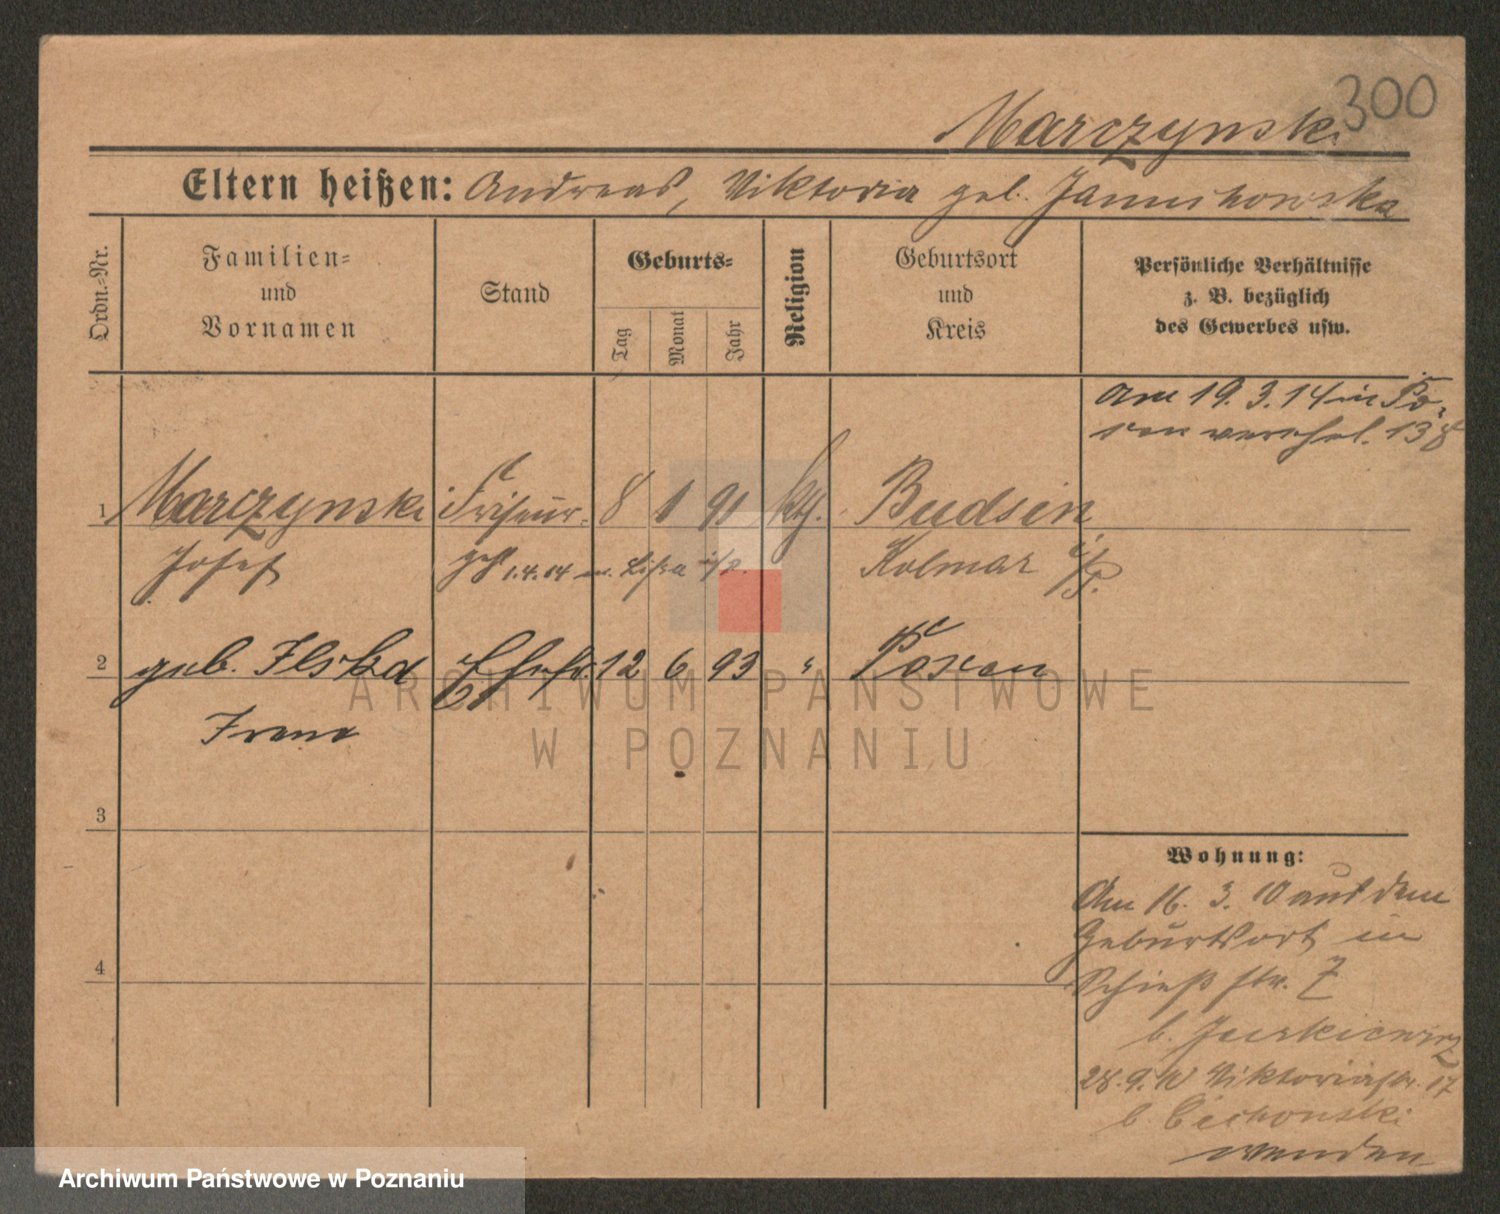 300
Marczynski
Eltern heißen: Andreas, Viktoria geb. Januchowska
Ordn.-Nr.
Familien-
und
Vornamen
Stand
Geburts-
Tag
Monat
Jahr
Religion
Geburtsort
und
Kreis
Persönliche Verhältnisse
z. B. bezüglich
des Gewerbes usw.
Am 19. 3. 14 in Po-
sen verehel. 138
1 Marczynski Friseur. 8 1 91 kth. Budsin
Josef 1.4.04 Lissa i/P. Kolmar i/P.
2 geb. Ehefr. 12 6 93 " Posen
Irene
3
4
Wohnung:
Am 16. 3. 10 aus dem
Geburtsort in
Schießstr. 7
b. Jurkiewicz
28.9.10 Viktoriastr. 17
b. Cichonski
wenden
ARCHIWUM PAŃSTWOWE
W POZNANIU
Archiwum Państwowe w Poznaniu